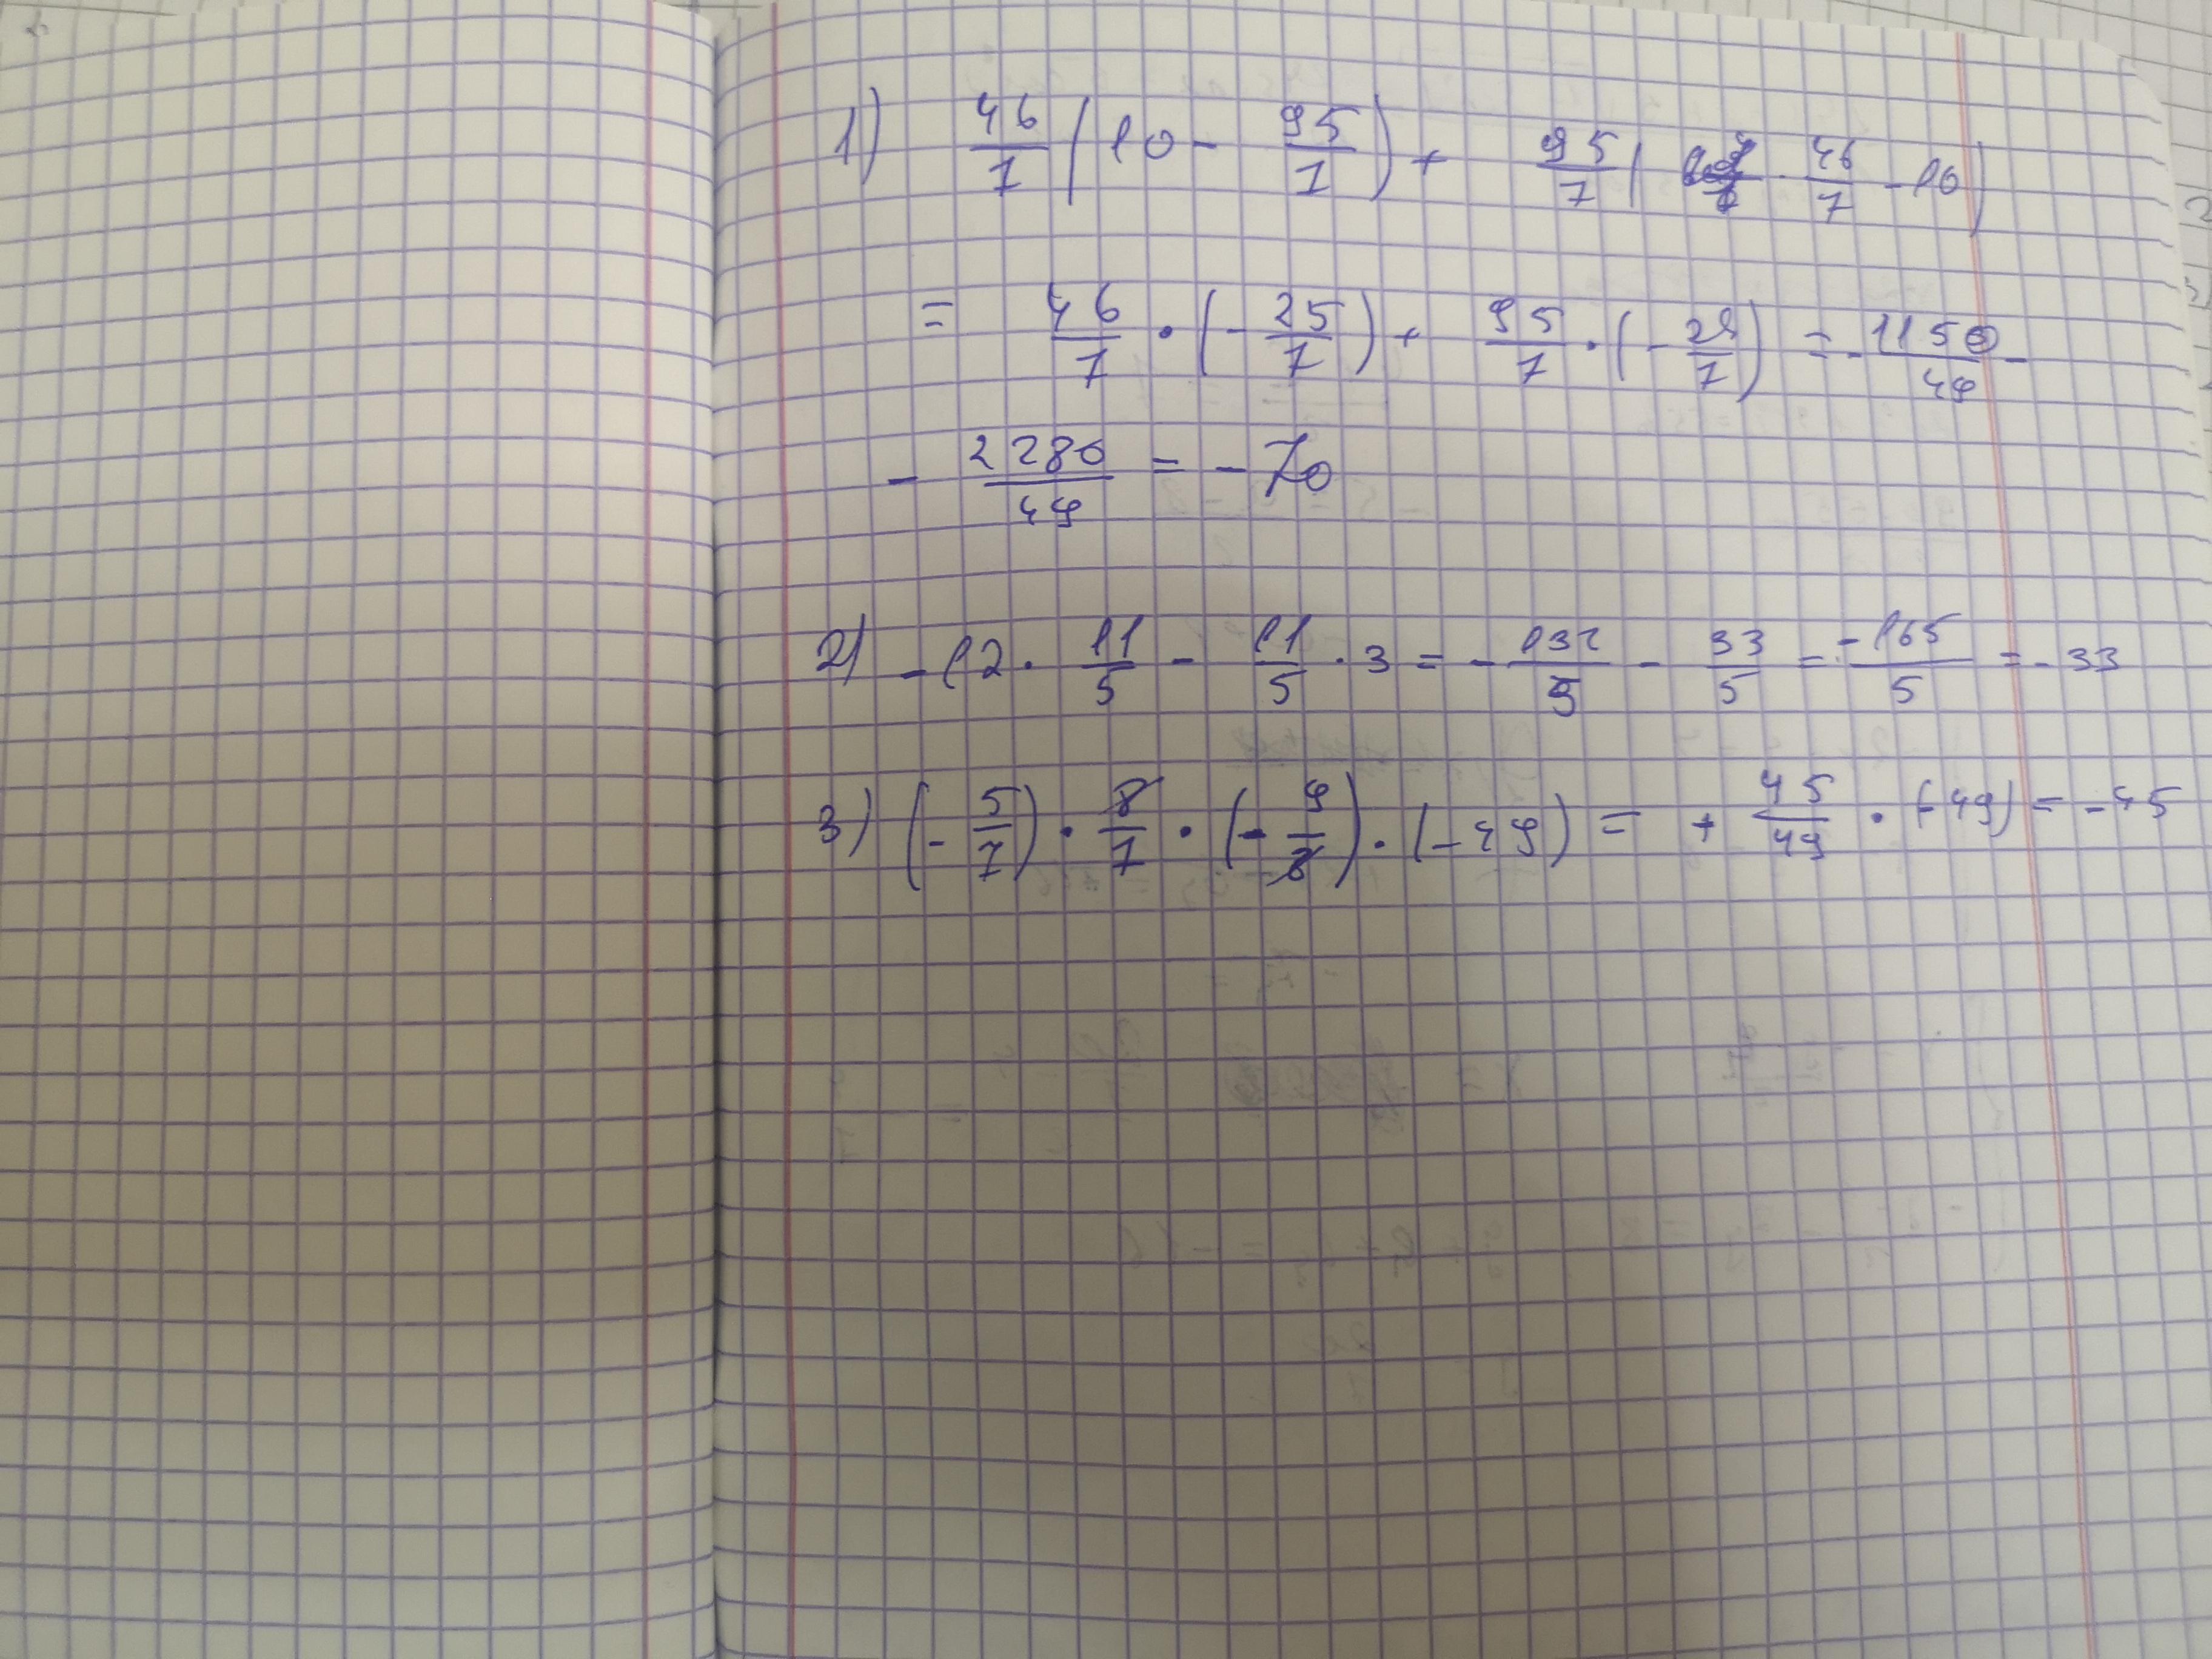 1) 46/7 (10 - 95/7) + 95/7 ( 46/7 - 10)
= 46/7 · (- 25/7) + 95/7 · (- 24/7) = - 1150/49 -
- 2280/49 = - 70
2) - 12 · 11/5 - 11/5 · 3 = - 132/5 - 33/5 = - 165/5 = - 33
3) (- 5/7) · 8/7 · (- 9/8) · (- 49) = + 45/49 · (-49) = - 45